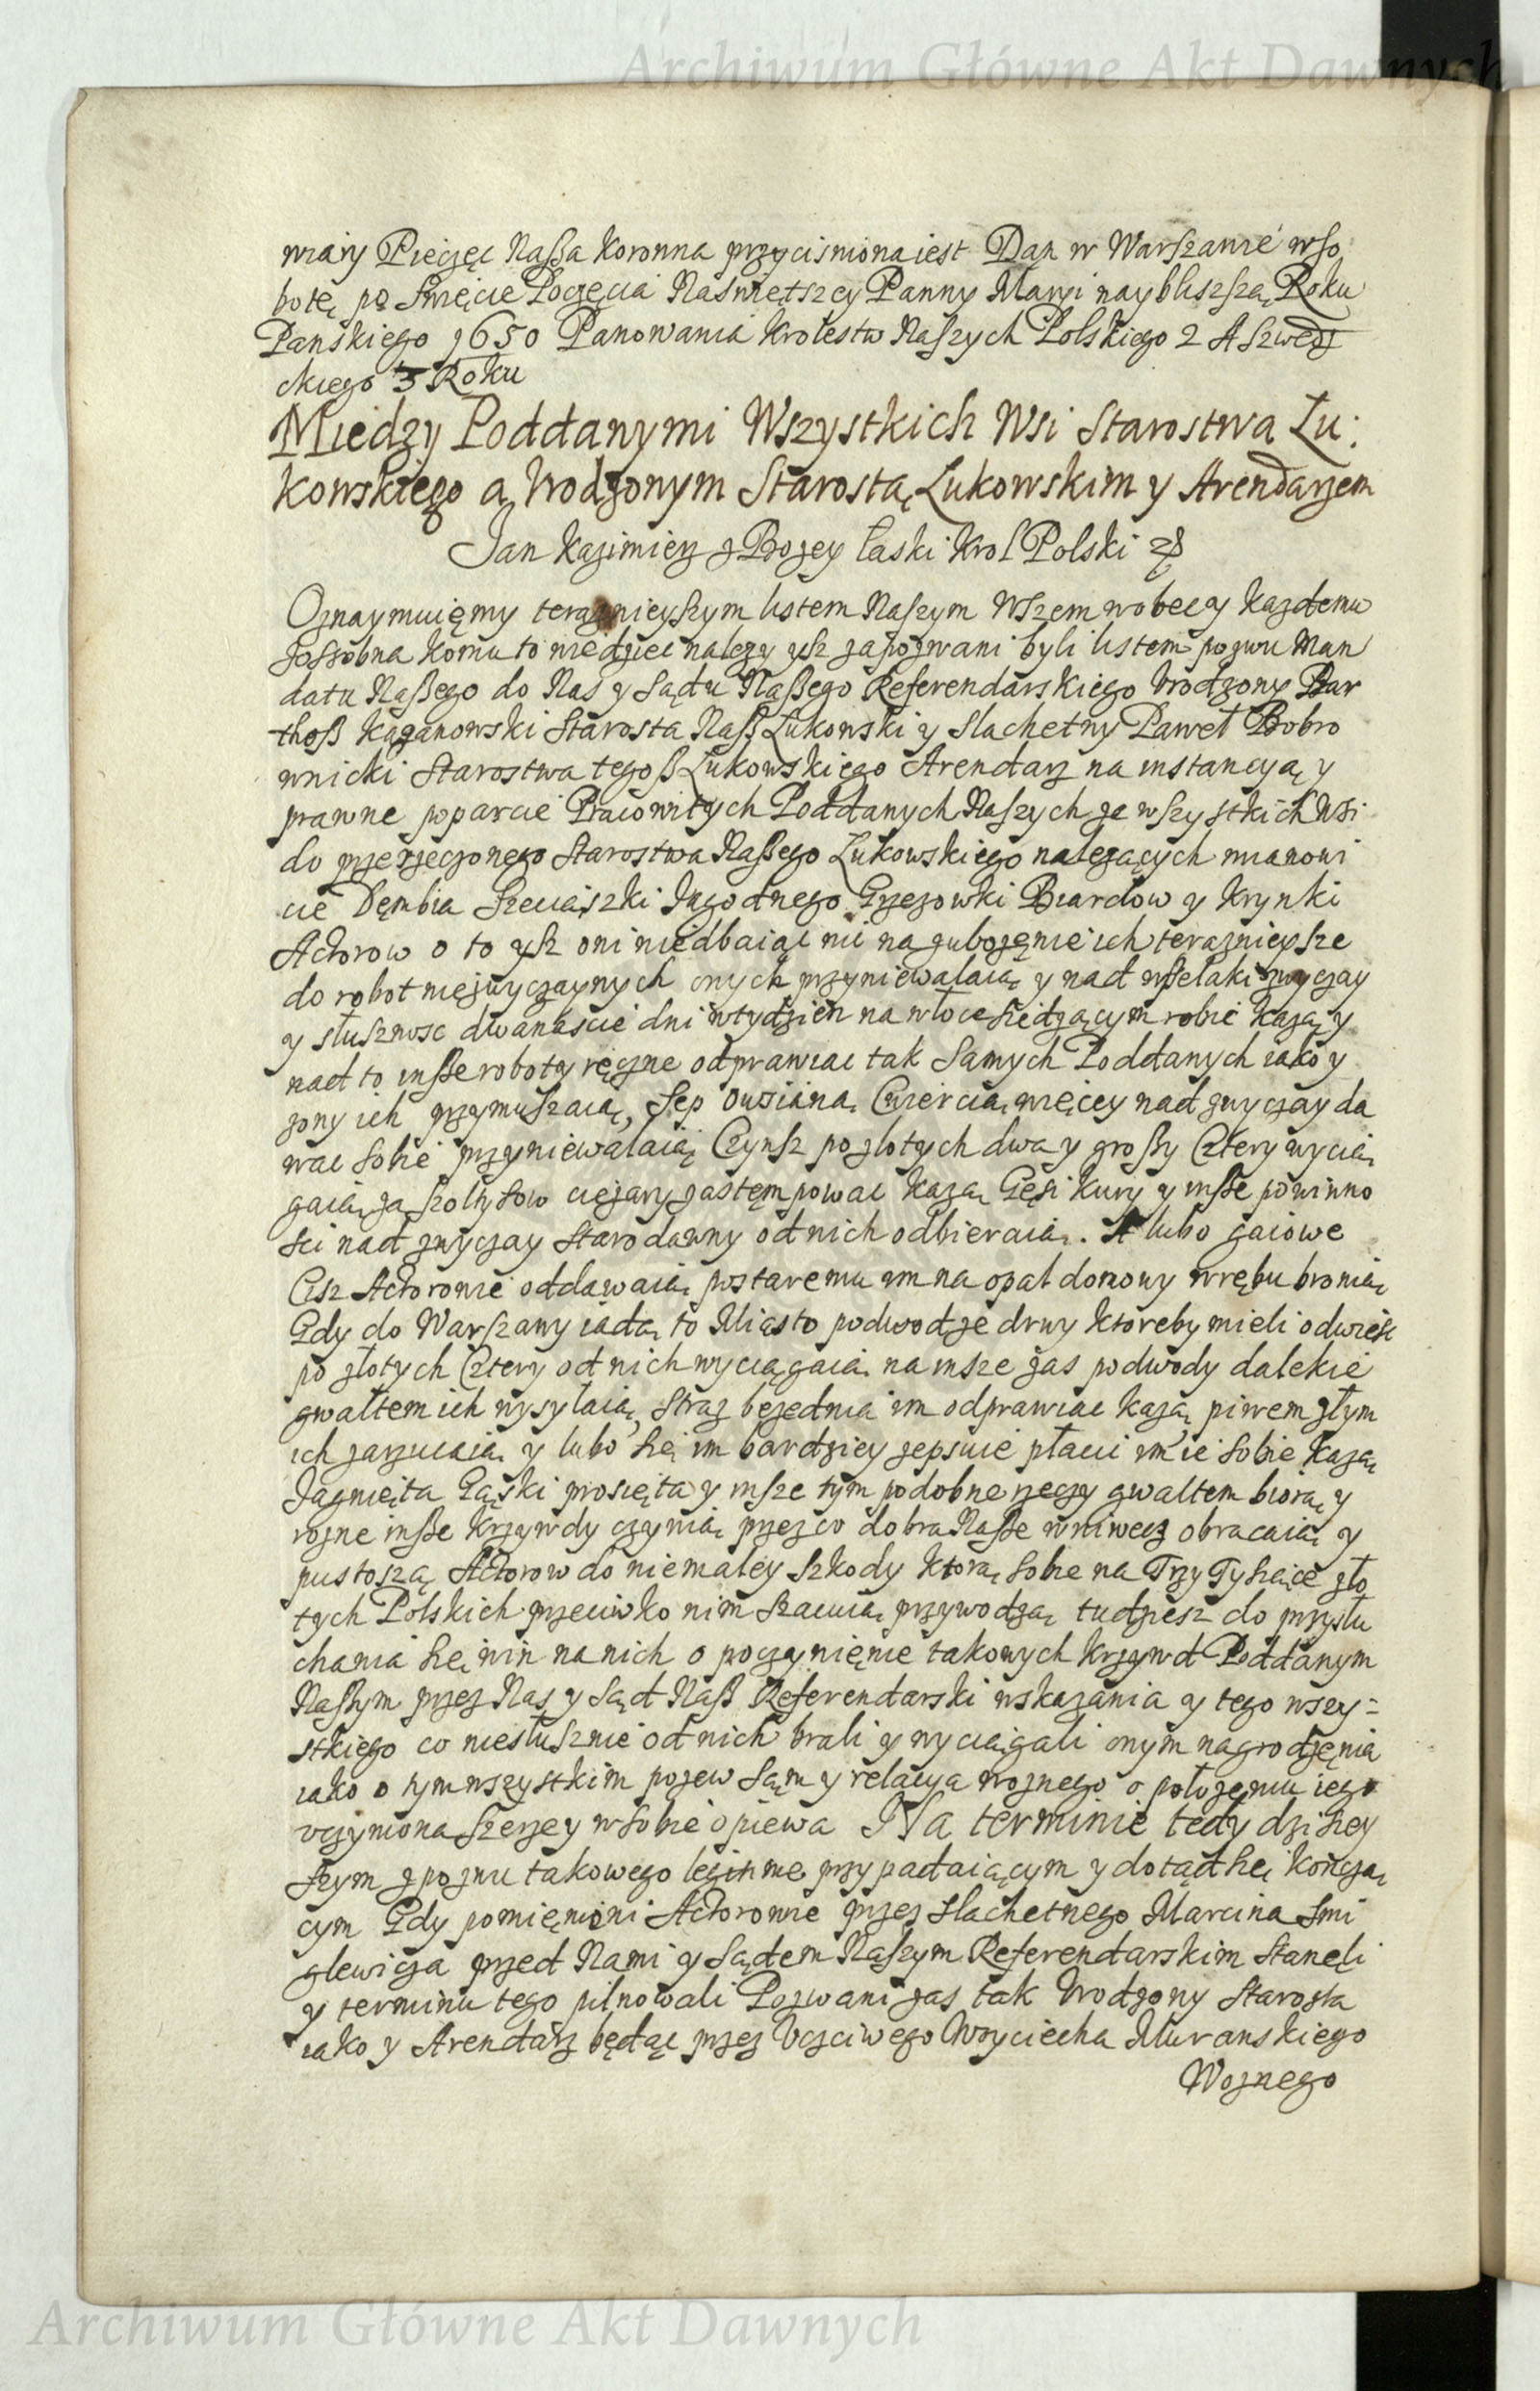 Archiwum Główne Akt Dawnych
wiary Pieczęc Naßa Koronna przycisniona iest Dan w Warszawie wso
botę po Swięcie Poczęcia Naswiętszey Panny Maryi naybliszszą Roku
Panskiego 1650 Panowania Krolestw Naszych Polskiego 2 A Szwedz
ckiego 3 Roku
Miedzy Poddanymi Wszystkich Wsi Starostwa Lu:
kowskiego a Vrodzonym Starostą Lukowskim y Arendarzem
Jan Kazimierz z Bozey łaski Krol Polski
Oznaymuięmy teraznieyszym listem Naszym Wszem wobec y kazdemu
zossobna komu to wiedziec nalezy ysz zapozwani byli listem pozwu Man
datu Naßego do Nas y Sądu Naßego Referendarskiego Vrodzony Bar
thoß Kazanowski Starosta Naß Lukowski y Slachetny Paweł Bobro
wnicki Starostwa tegoß Lukowskiego Arendarz na instancyą y
prawne poparcie Pracowitych Poddanych Naszych ze wszystkich Wsi
do przerzeczonego Starostwa Naßego Lukowskiego nalezących mianowi
cie Dęmbia Szeciaszki Jagodnego Grzezowki Biardow y Krynki
Actorow o to ysz oni niedbaiąc nic na zubozęnie ich teraznieysze
do robot niezwyczaynych onych przyniewalaią y nad wßelaki zwyczay
y słusznosc dwanascie dni wtydzien na włoce siedzącym robic kazą y
nad to inße roboty ręczne odprawiac tak Samych Poddanych iako y
zony ich przymuszaią, Sep Owsiana Cwiercią więcey nad zwyczay da
wac sobie przyniewalaią Czynsz po złotych dwa y großy Cztery wycią
gaią za szołtysow cięzary zastęmpowac kazą Gęsi kury y inße powinno
sci nad zwyczay starodawny od nich odbieraią. A lubo gaiowe
Cisz Actorowie oddawaią postaremu im na opał domowy wrębu bronią
Gdy do Warszawy iadą to Miasto podwod ze drwy ktoreby mieli odwiesc
po złotych Cztery od nich wyciągaią na insze zas podwody dalekie
gwałtem ich wysyłaią, Straz bezednia im odprawiac kazą piwem złym
ich zarzucaią y lubo się im bardziey zepsuie płacic ie sobie kazą
Jagnięta Gąski prosięta y insze tym podobne rzeczy gwałtem biorą y
rozne inße krzywdy czynią przez co dobra Naße wniwecz obracaią y
pustoszą Actorow do niemałey szkody ktorą sobie na Trzy Tysiące zło
tych Polskich przeciwko nim szacuią przywodzą tudziesz do przysłu
chania się win na nich o poczynięnie takowych krzywd Poddanym
Naßym przez Nas y Sąd Naß Referendarski wskazania y tego wszy=
stkiego co niesłusznie od nich brali y wyciągali onym nagrodzęnia
iako o tym wszystkim pozew sąm y relacya woznego o połozęniu iego
vczyniona szerzey wsobie opiewa Na terminie tedy dzisiey
szym z pozwu takowego legitime przypadaiącym y dotąd się kończą
cym Gdy pomięnioni Actorowie przez slachetnego Marcina Smi
glewicza przed Nami y Sądem Naszym Referendarskim Stanęli
y terminu tego pilnowali Pozwani zas tak Vrodzony Starosta
iako y Arendarz będąc przez Vczciwego Woyciecha Muranskiego
Woznego
Archiwum Główne Akt Dawnych